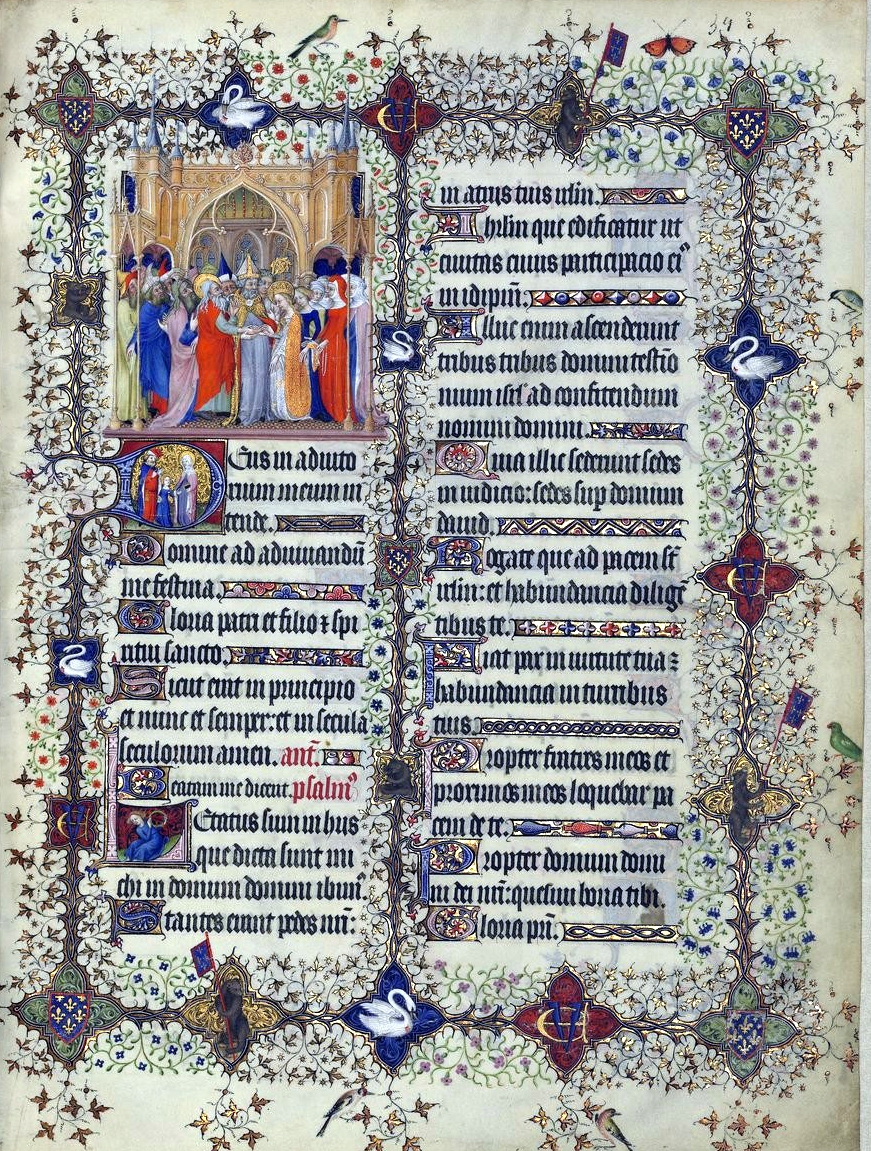 Deus in adiuto
rium meum in
tende.
Domine ad adiuuandū
me festina.
Gloria patri et filio ⁊ spi
ritui sancto.
Sicut erat in principio
et nunc et semper: et in secula
seculorum amen. ant̄.
Beatam me dicent. psalmꝰ
Letatus sum in hiis
que dicta sunt mi
chi in domum domini ibimꝰ
Stantes erant pedes nr̄i.
in atriis tuis ihrl̄m.
Ihrl̄m que edificatur ut
ciuitas cuius participacio eiꝰ
in idip̄m.
Illuc enim ascenderunt
tribus tribus domini testīo
nium isrl̄ ad confitendum
nomini domini.
Quia illic sederunt sedes
in iudicio: sedes sup domum
dauid.
Rogate que ad pacem st̄
ihrl̄m: et habundancia diligē
tibus te.
Fiat pax in uirtute tua:
habundancia in turribus
tuis.
Propter fratres meos et
proximos meos loquebar pa
cem de te.
Propter domum domi
ni dei nr̄i: quesiui bona tibi.
Gloria pr̄i.